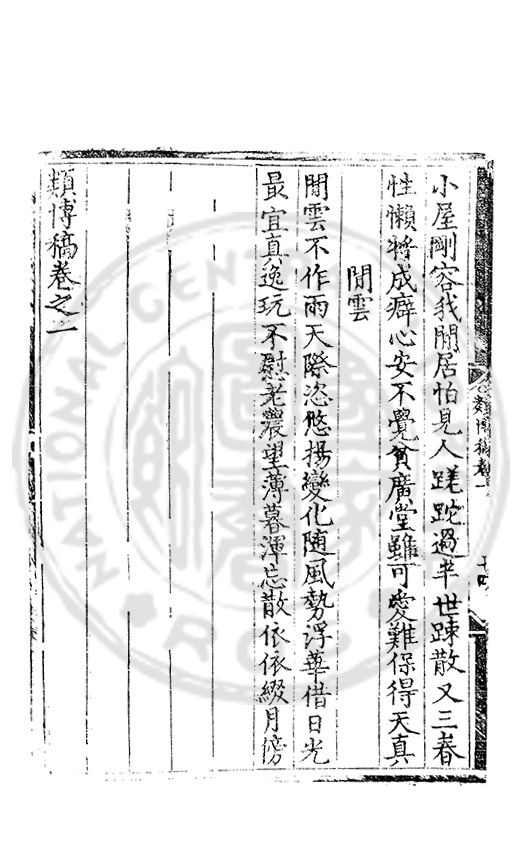 小屋剛容我閒居怕見人蹉跎過半世踈散又三春
性懶將成癖心安不覺貧廣堂雖可愛難保得天真
閒雲
閒雲不作雨天際恣悠揚變化随風勢浮華借日光
最宜真逸玩不慰老農望薄暮渾忘散依依綴月傍
類博稿卷之一
類博稿卷一
十四
NATIONAL CENTRAL